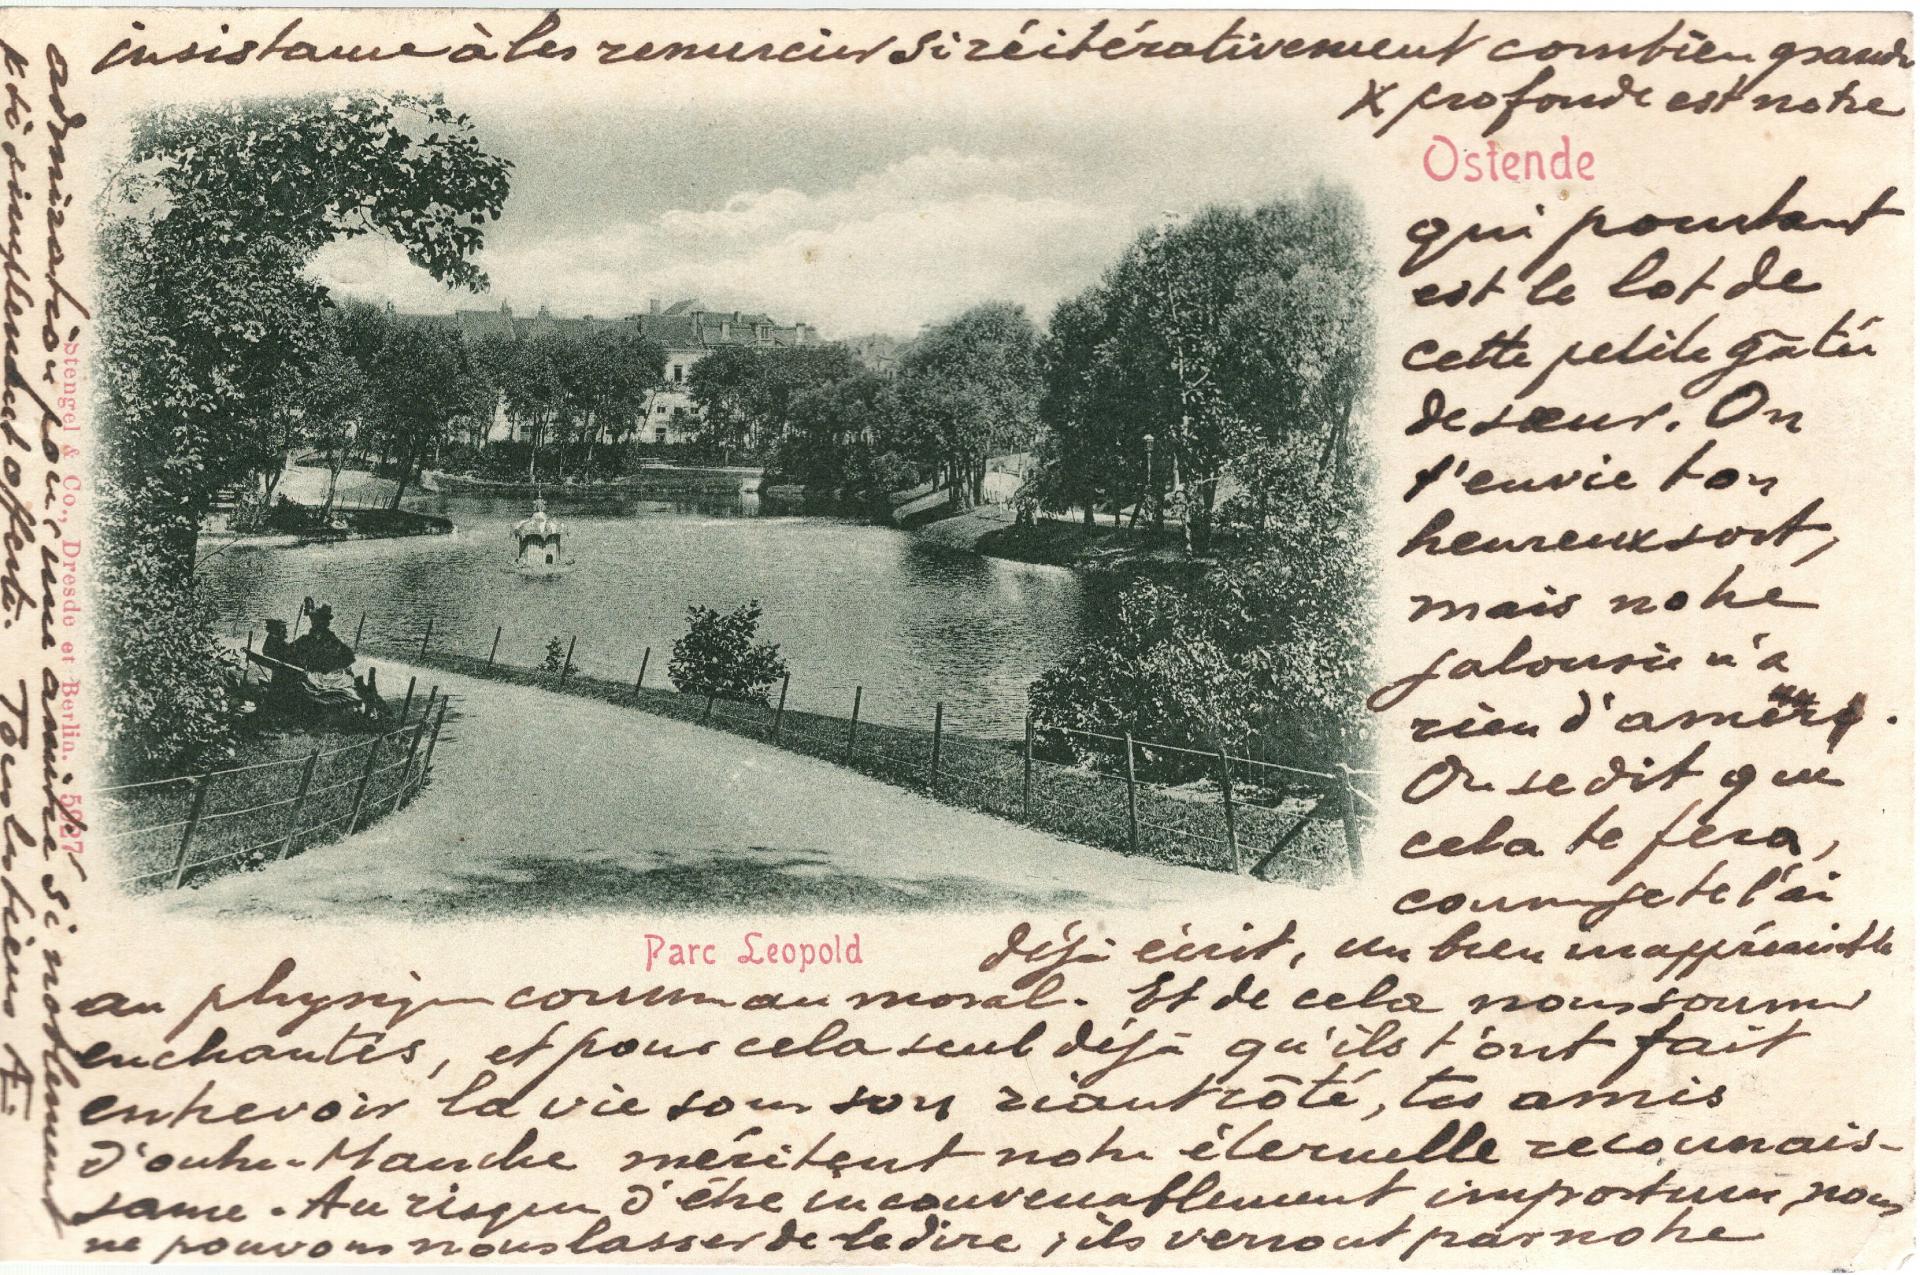 Ostende
qui pourtant
est le lot de
cette petite gâtée
de sœur. On
t'envie ton
heureux sort,
mais notre
jalousie n'a
rien d'amère.
On se dit que
cela te fera,
comme je te l'ai
déjà écrit, un bien inappréciable
au physique comme au moral. Et de cela nous sommes
enchantés, et pour cela seul déjà qu'ils t'ont fait
entrevoir la vie sous son riant côté, tes amis
d'outre-Manche méritent notre éternelle reconnais-
sance. Au risque d'être inconvenablement importuns, nous
ne pouvons nous lasser de le dire ; ils verront par notre
insistance à les remercier si réitérativement combien grande
& profonde est notre
admiration pour une amitié si noblement
& si simplement offerte. Tous les tiens A.
Parc Leopold
Stengel & Co., Dresde et Berlin. 5927